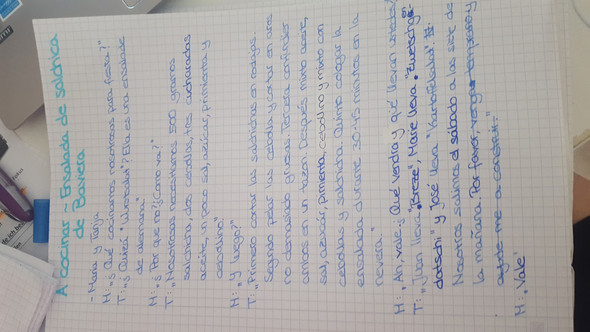 A cocinar ~ Ensalada de salchica
de Baviera
- Maria y Tanja
H: "¿ Qué cocinamos nosotras para fiesta?"
T: "¿ Quizás "Wurstsalat"? Ella es una ensalada
de alemana."
H: "¿ Por que no? ¿Cómo va?"
T: "Nosotros necesitamos 500 gramos
salchicha, dos cebollas, tres cucharadas
aceite, un poco sal, azúcar, primienta y
cebollino"
H: "¿ Y luego?"
T: "Primero cortar las salchichas en rodajas.
Segundo pelar las cebolla y cortar en aros
no demasiado gruesa. Tercero confinder
ambos en un tazón. Después mixto aceite,
sal, azúcar, pimienta, cebollino y mixto con
cebollas y salchicha. Quinto colegar la
ensalada durante 30-45 minutos en la
nevera."
H: "Ah, vale ¿ Qué vendrá y qué llevan ustedes?
T: "Juan lleva "Breze", Marie lleva "Zwetschgen-
datschi" y José lleva "Kartoffelsalat"
Nosotros salimos el sábado a las siete de
la mañana. Por favor,
H: "Vale"